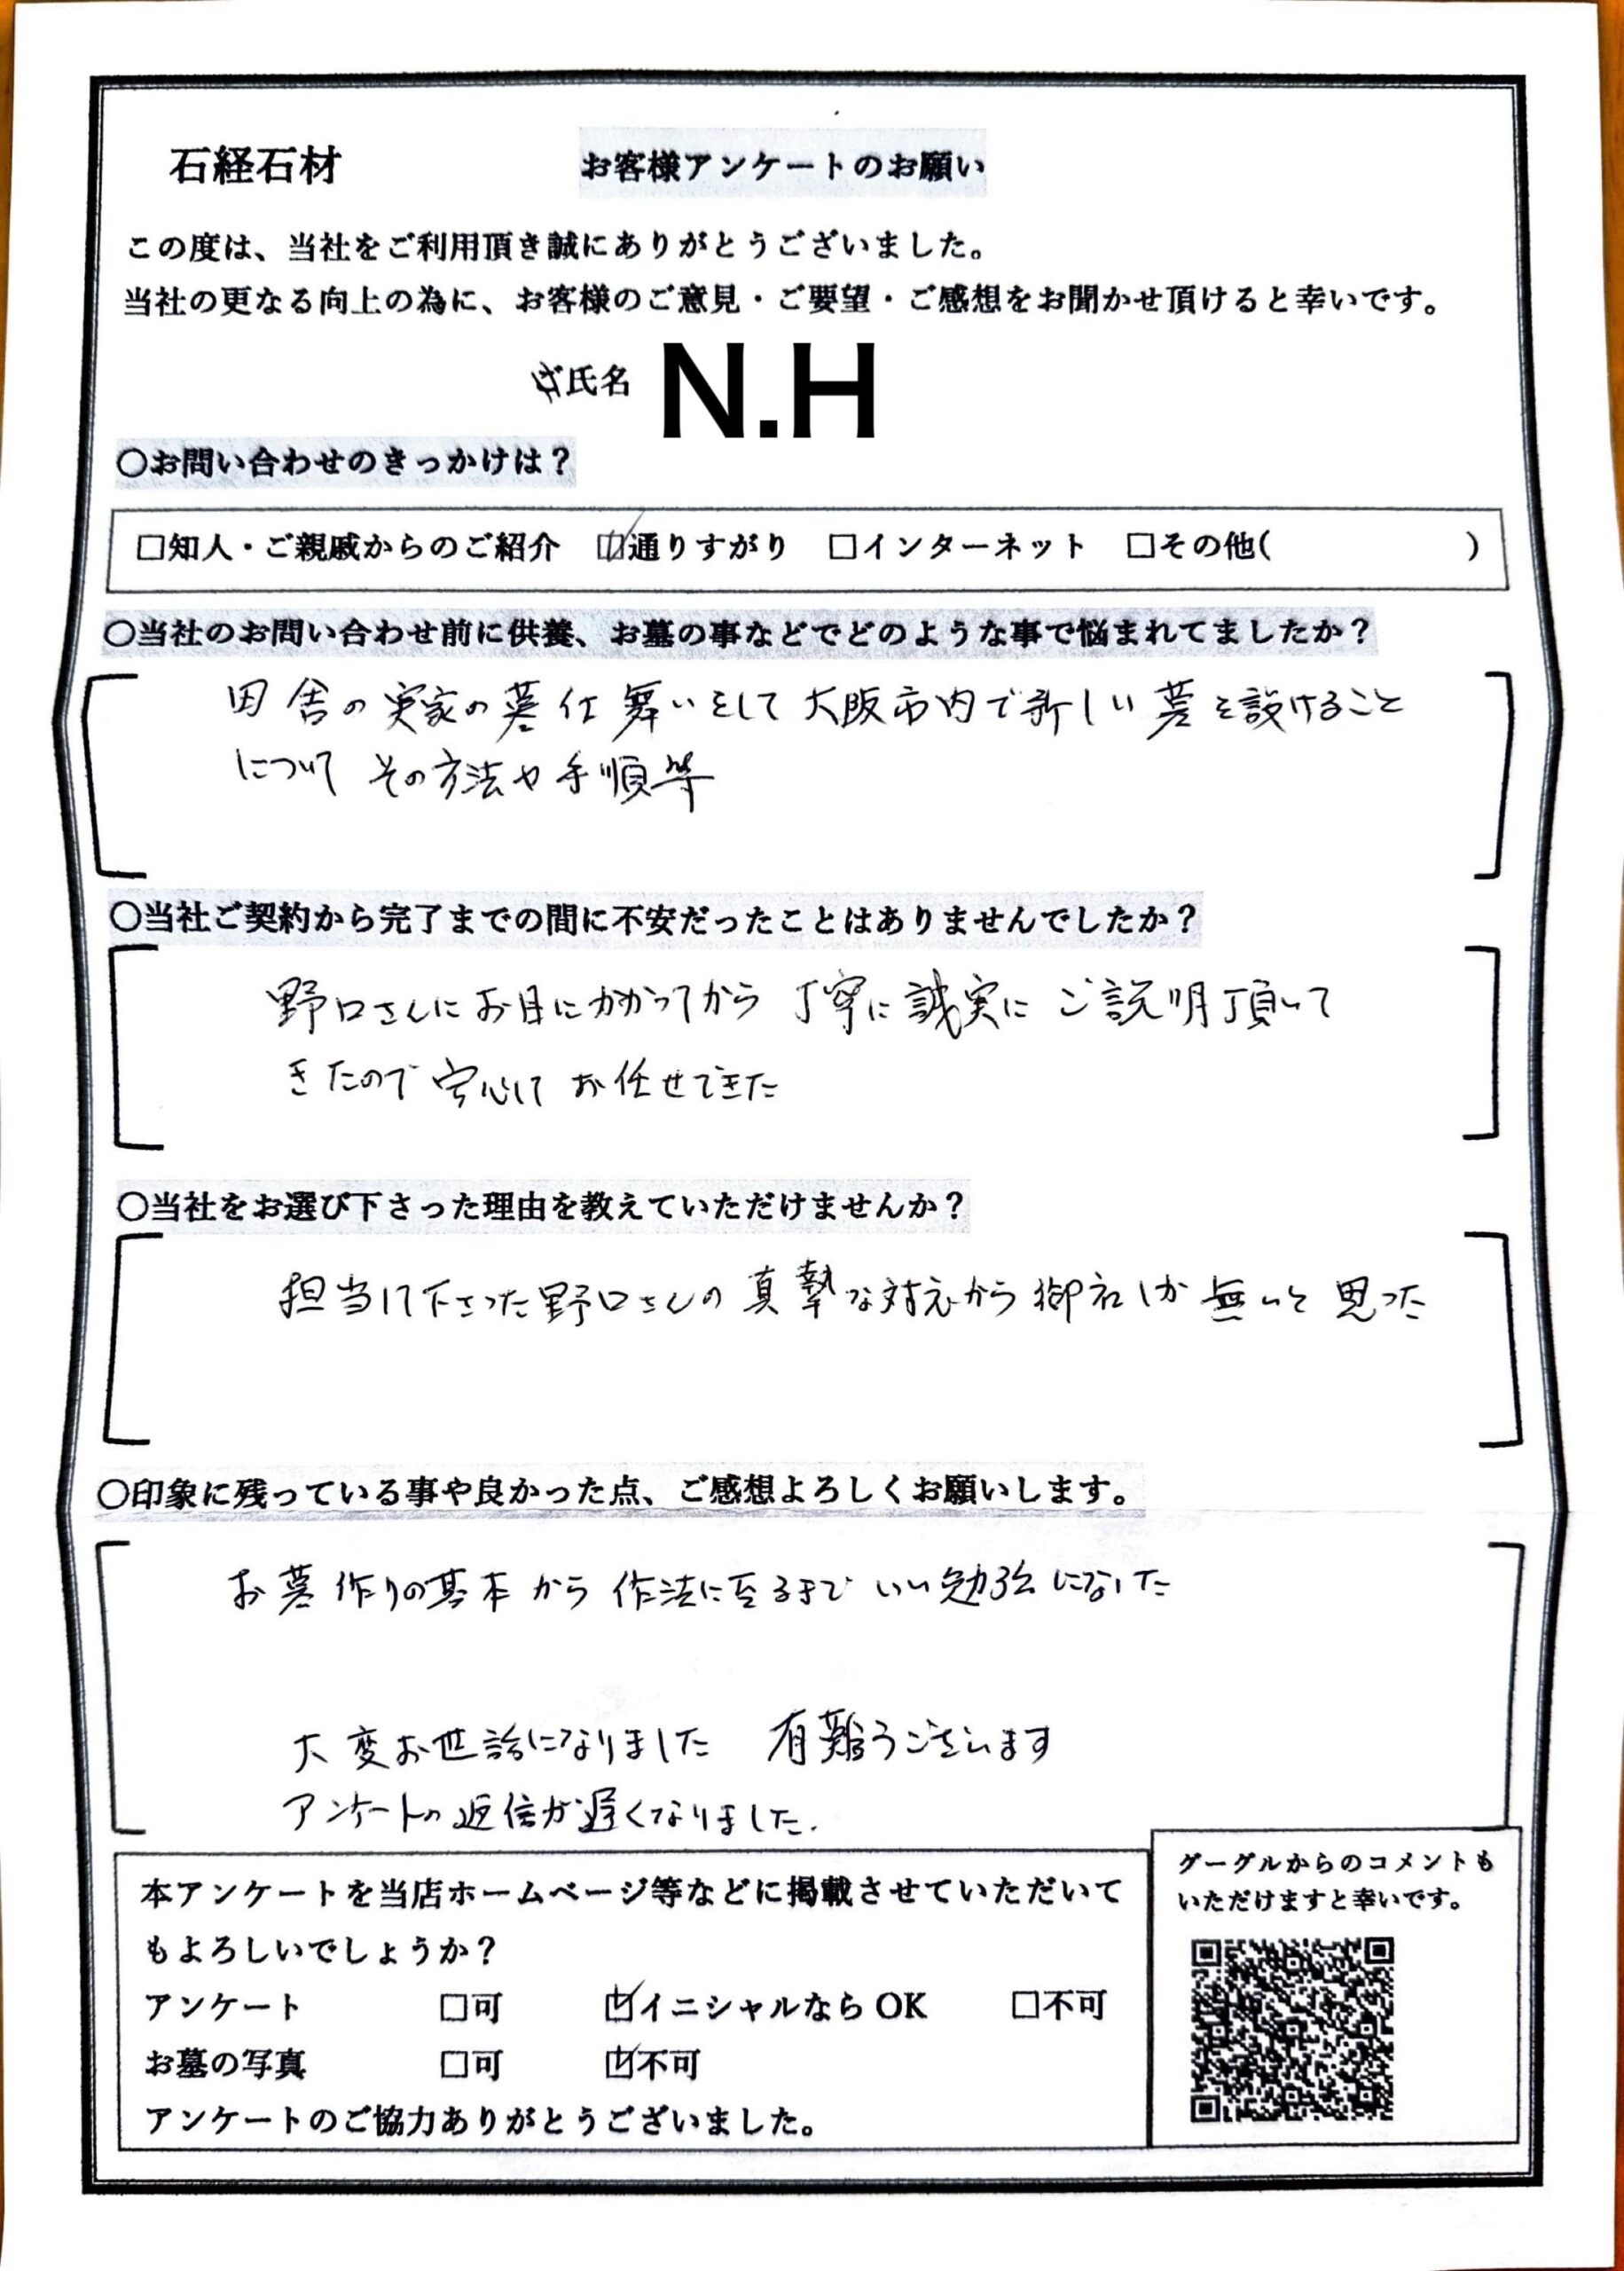 石経石材 お客様アンケートのお願い
この度は、当社をご利用頂き誠にありがとうございました。
当社の更なる向上の為に、お客様のご意見・ご要望・ご感想をお聞かせ頂けると幸いです。
ご氏名 N.H
〇お問い合わせのきっかけは？
□知人・ご親戚からのご紹介 ☑通りすがり □インターネット □その他( )
〇当社のお問い合わせ前に供養、お墓の事などでどのような事で悩まれてましたか？
田舎の実家の墓仕舞いをして大阪市内で新しい墓を設けること
について その方法や手順等
〇当社ご契約から完了までの間に不安だったことはありませんでしたか？
野口さんにお目にかかってから 丁寧に誠実に ご説明頂いて
きたので 安心して お任せできた
〇当社をお選び下さった理由を教えていただけませんか？
担当して下さった野口さんの真摯な対応から御社しか無いと思った
〇印象に残っている事や良かった点、ご感想よろしくお願いします。
お墓作りの基本から作法に至るまで いい勉強になった
大変お世話になりました 有難うございます
アンケートの返信が遅くなりました.
本アンケートを当店ホームページ等などに掲載させていただいて
もよろしいでしょうか？
アンケート □可 ☑イニシャルなら OK □不可
お墓の写真 □可 ☑不可
アンケートのご協力ありがとうございました。
グーグルからのコメントも
いただけますと幸いです。